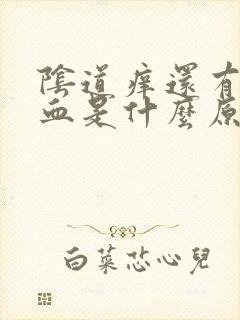 陰道痒還有
血是什麼原
白菜芯心兒